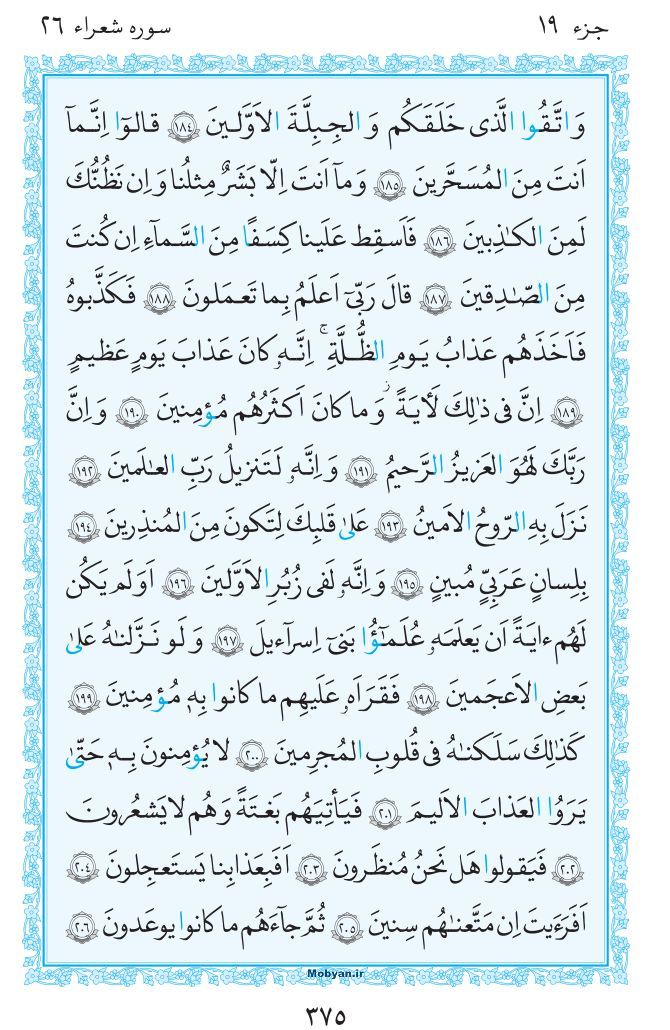 جزء ۱۹
سوره شعراء ۲۶
وَ اتَّقُوا الَّذی خَلَقَکُم وَ الجِبِلَّةَ الاَوَّلـینَ ﴿۱۸۴﴾ قـالوٓا اِنَّـمآ
اَنتَ مِنَ المُسَحَّرینَ ﴿۱۸۵﴾ وَ مآ اَنتَ اِلّا بَشَرٌ مِثلُنا وَ اِن نَظُنُّکَ
لَمِنَ الکـٰذِبینَ ﴿۱۸۶﴾ فَاَسقِط عَلَینا کِسَفًا مِنَ السَّمآءِ اِن کُنتَ
مِنَ الصّـٰدِقینَ ﴿۱۸۷﴾ قالَ رَبّیٓ اَعلَمُ بِما تَعمَلونَ ﴿۱۸۸﴾ فَکَذَّبوهُ
فَاَخَذَهُم عَذابُ یَـومِ الظُّـلَّةِ ۚ اِنَّـهو کانَ عَذابَ یَومٍ عَظیمٍ
﴿۱۸۹﴾ اِنَّ فی ذٰلِکَ لَأیَةً ۖ وَ ما کانَ اَکثَرُهُم مُؤمِنینَ ﴿۱۹۰﴾ وَ اِنَّ
رَبَّکَ لَهُوَ العَزیزُ الرَّحیمُ ﴿۱۹۱﴾ وَ اِنَّهو لَتَنزیلُ رَبِّ العـٰلَمینَ ﴿۱۹۲﴾
نَزَلَ بِهِ الرّوحُ الاَمینُ ﴿۱۹۳﴾ عَلىٰ قَلبِکَ لِتَکونَ مِنَ المُنذِرینَ ﴿۱۹۴﴾
بِلِسانٍ عَرَبِیٍّ مُبینٍ ﴿۱۹۵﴾ وَ اِنَّهو لَفی زُبُرِ الاَوَّلینَ ﴿۱۹۶﴾ اَوَ لَم یَکُن
لَهُم ءایَةً اَن یَعلَمَهو عُلَمـٰٓؤُا بَنیٓ اِسرآءیلَ ﴿۱۹۷﴾ وَ لَو نَـزَّلنـٰهُ عَلىٰ
بَعضِ الاَعجَمینَ ﴿۱۹۸﴾ فَقَرَاَهو عَلَیهِم ما کانوا بِهٖ مُؤمِنینَ ﴿۱۹۹﴾
کَذٰلِکَ سَلَکنـٰهُ فی قُلوبِ المُجرِمینَ ﴿۲۰۰﴾ لا یُؤمِنونَ بِـهٖ حَتّىٰ
یَرَوُا العَذابَ الاَلیمَ ﴿۲۰۱﴾ فَیَأتِیَهُم بَغتَةً وَ هُم لا یَشعُرونَ
﴿۲۰۲﴾ فَیَقولوا هَل نَحنُ مُنظَرونَ ﴿۲۰۳﴾ اَفَبِعَذابِنا یَستَعجِلونَ ﴿۲۰۴﴾
اَفَرَءَیتَ اِن مَتَّعنـٰهُم سِنینَ ﴿۲۰۵﴾ ثُمَّ جآءَهُم ما کانوا یوعَدونَ ﴿۲۰۶﴾
Mobyan.ir
۳۷۵